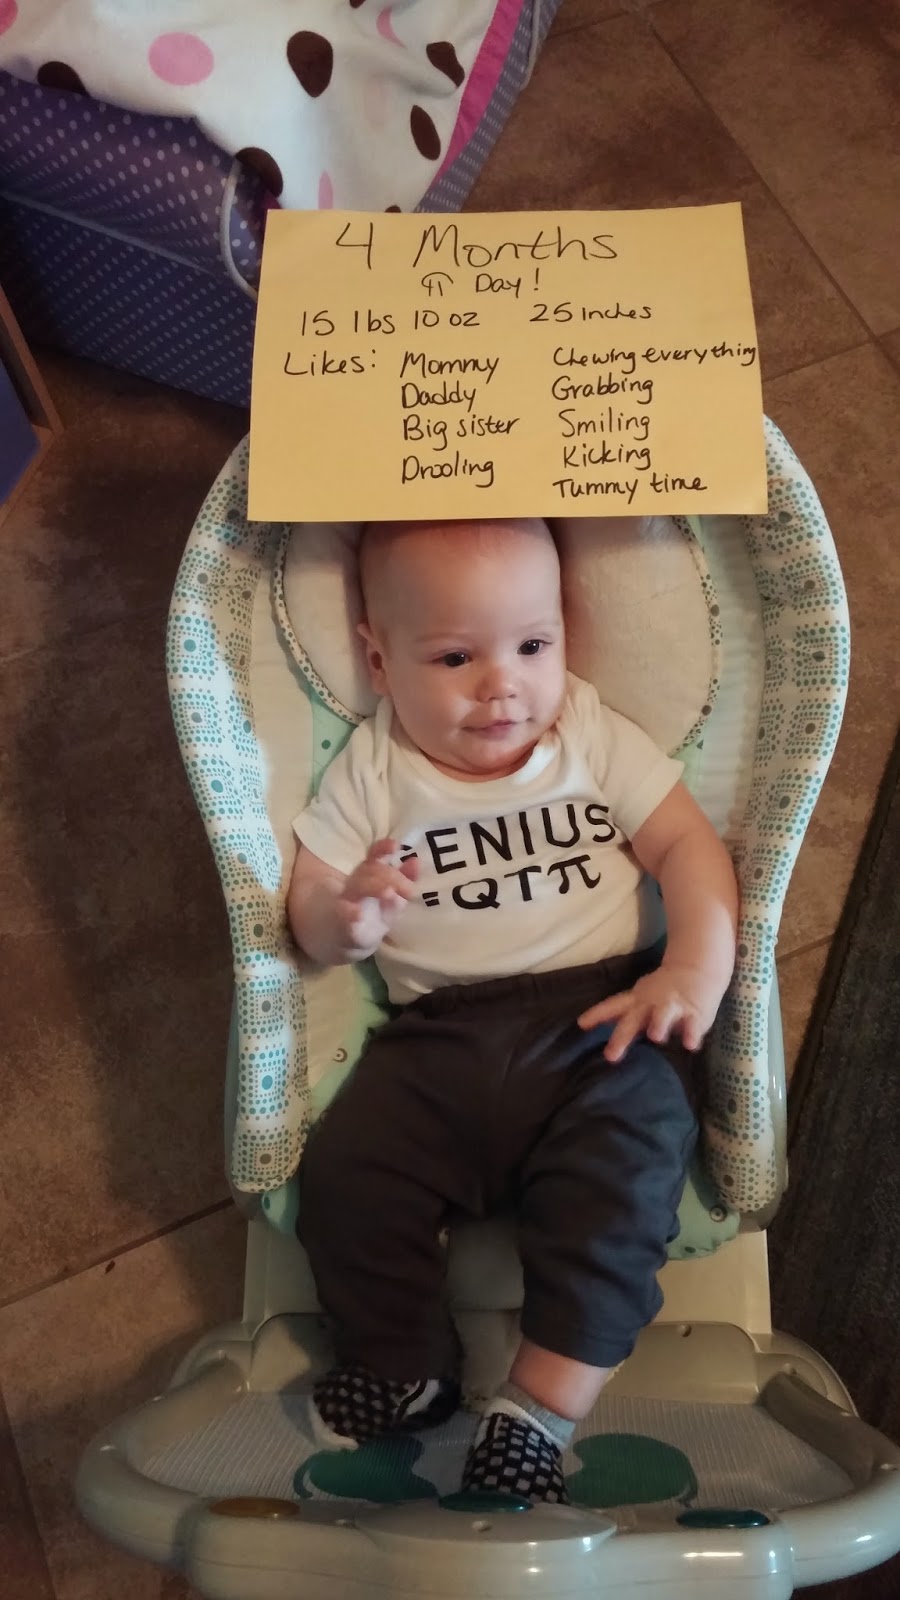 4 Months
π Day!
15 lbs 10 oz 25 inches
Likes: Mommy Chewing everything
Daddy Grabbing
Big sister Smiling
Drooling Kicking
Tummy time
GENIUS
=QTπ